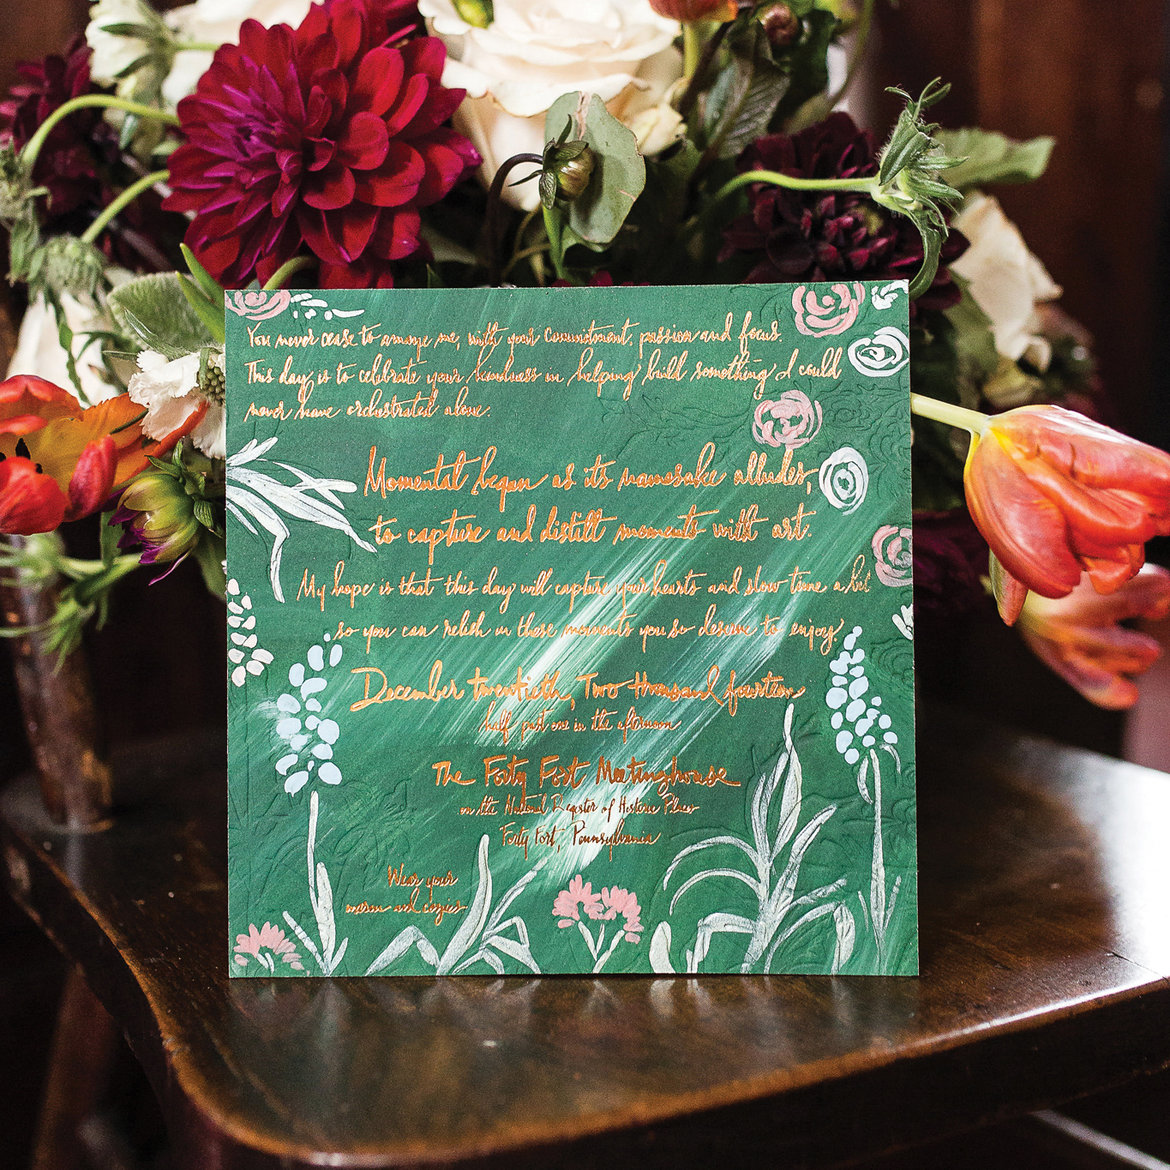 You never cease to amaze me, with your commitment, passion and focus.
This day is to celebrate your kindness in helping build something I could
never have orchestrated alone.
Momental began as its namesake alludes,
to capture and distill moments with art.
My hope is that this day will capture your hearts and slow time a bit
so you can relish in these moments you so deserve to enjoy.
December twentieth, Two thousand fourteen
half past one in the afternoon
The Forty Fort Meetinghouse
on the National Register of Historic Places
Forty Fort, Pennsylvania
Wear your
warm and cozies